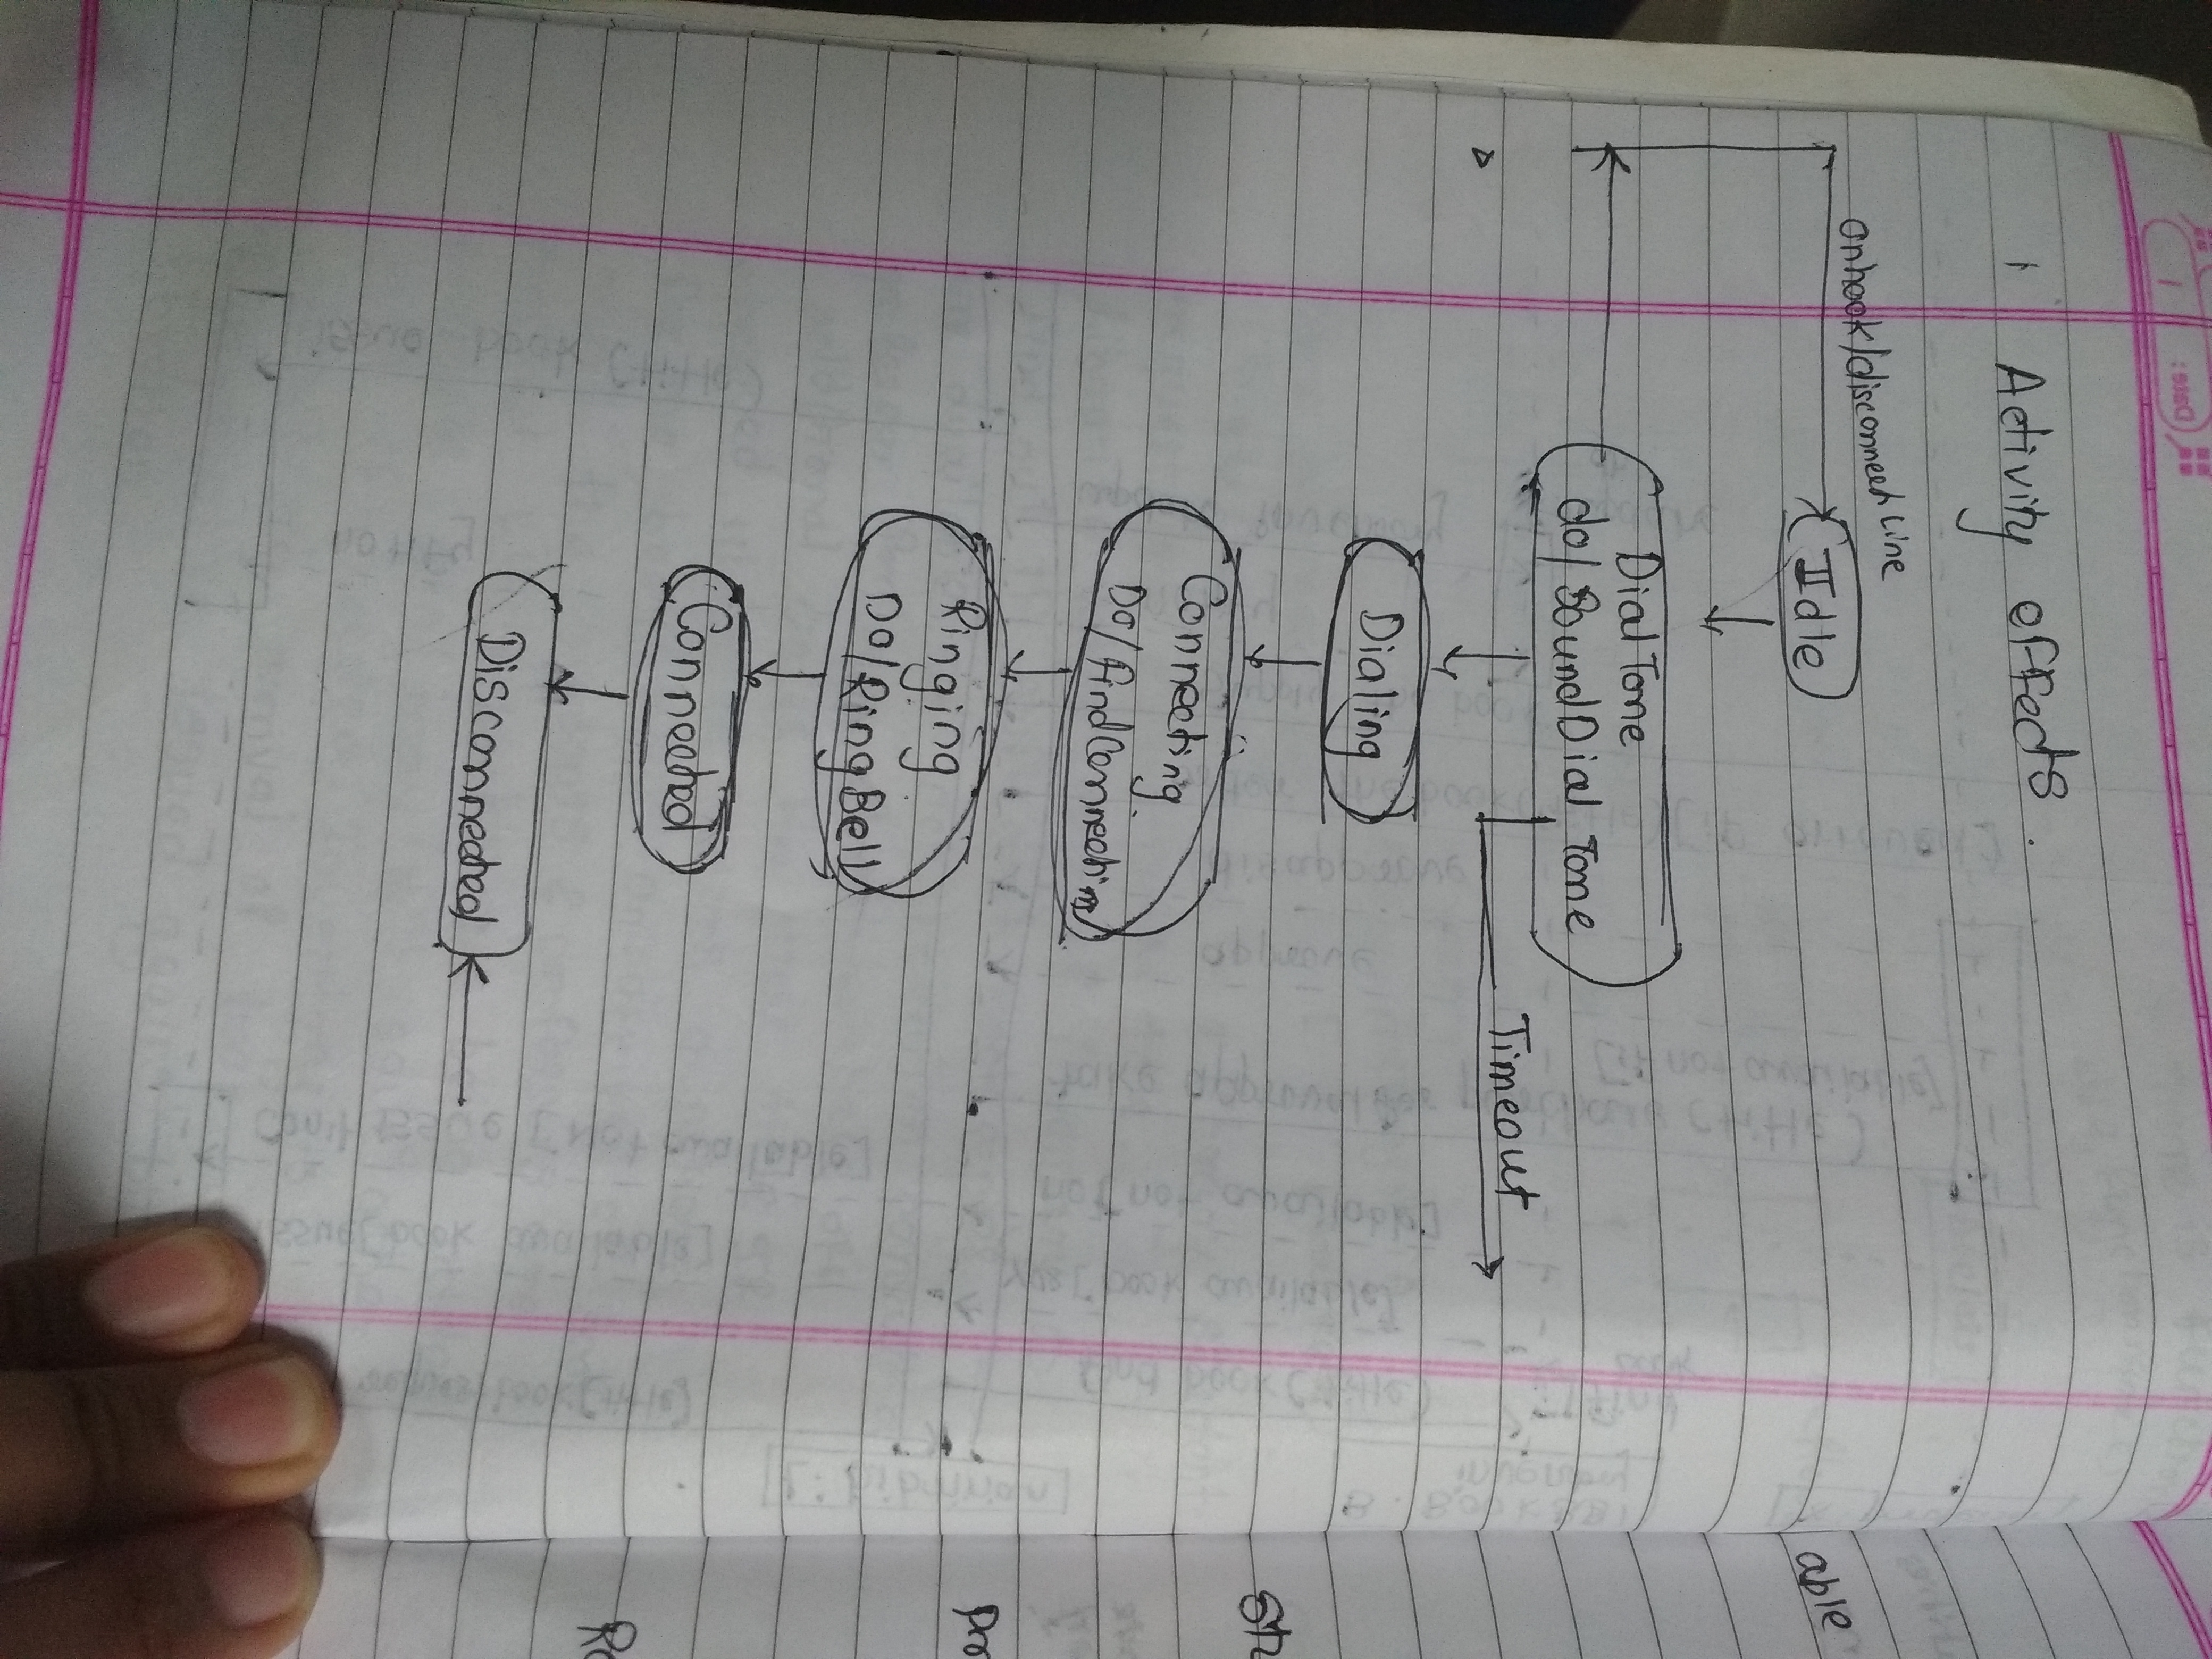 1 Activity effects.
onhook/disconnect Line
Idle
Dial Tone
do/ Sound Dial Tone
Timeout
Dialing
Connecting
Do/ find Connection
Ringing
Do/Ring Bell
Connected
Disconnected
able